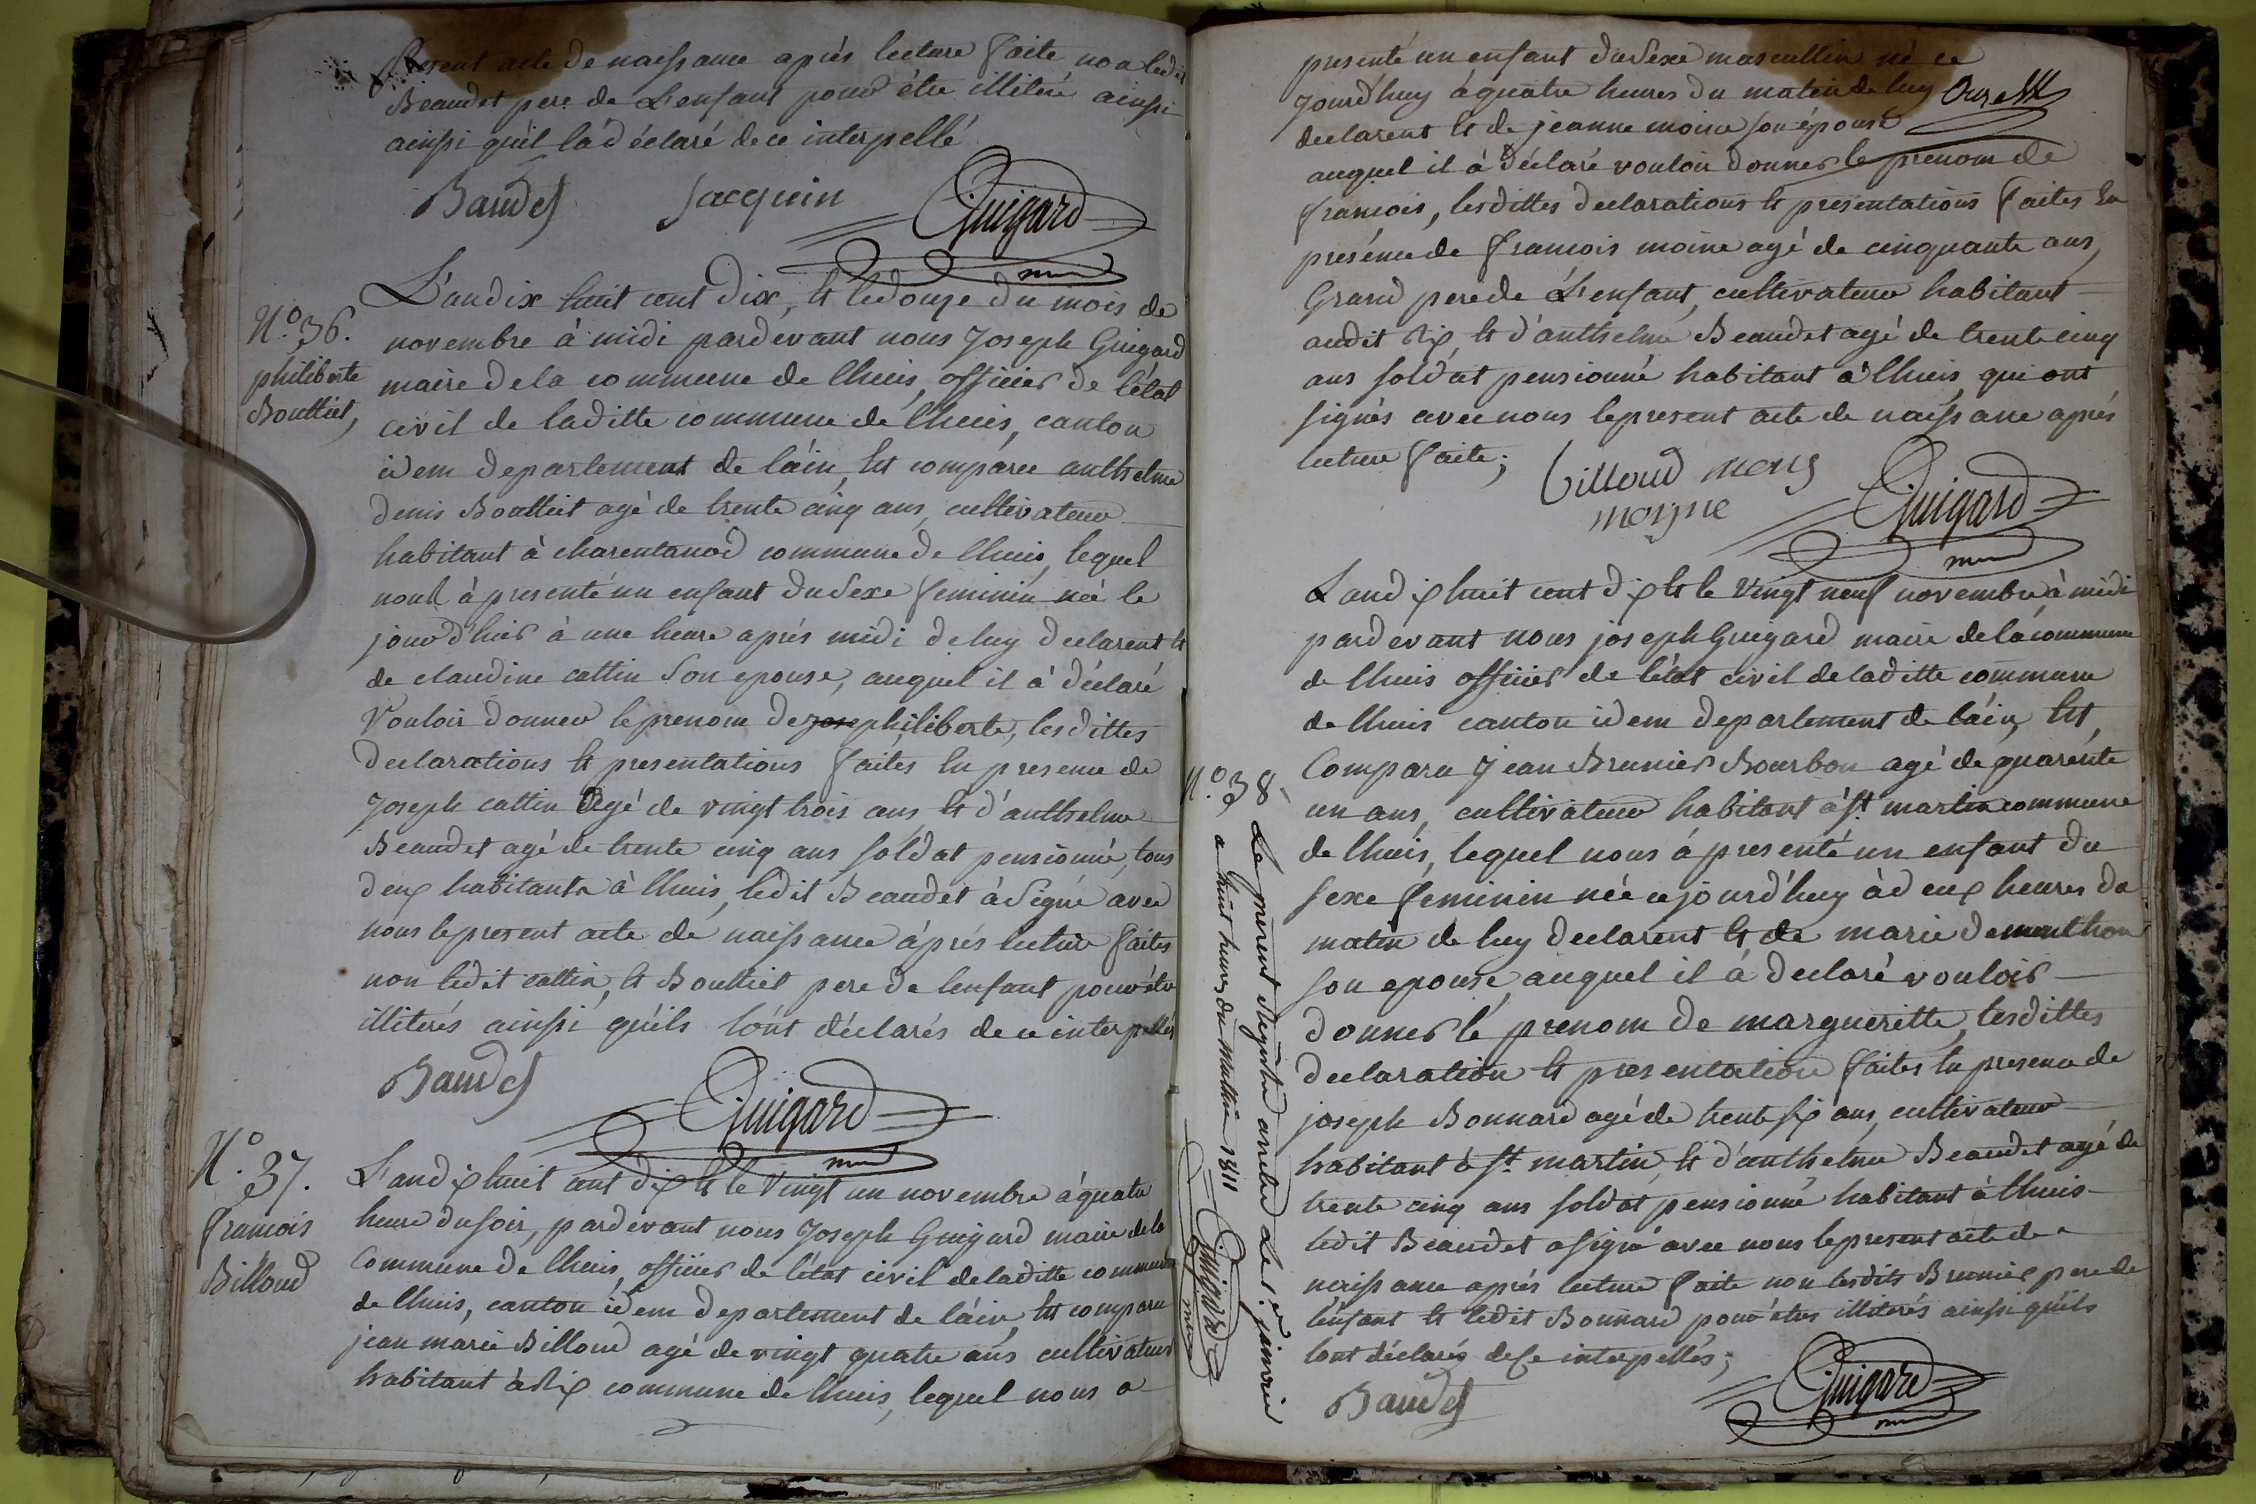 present acte de naissance aprés lecture faite non ledit
Beaudet pere de L'enfant pour être illiteré ainsi
ainsi qu'il la déclaré de ce interpellé
Baudet Jacquin Guigard
N.o 36.
philiberte
Bouttiet,
L'an dix huit cent dix, et le douze du mois de
novembre à midi pardevant nous Joseph Guigard
maire dela commune de lhuis, officier de létat
civil de laditte commune de lhuis, canton
idem departement de láin, Est comparu anthelme
denis Bouttiet agé de trente cinq ans, cultivateur
habitant à charentanod commune de lhuis, lequel
nous à presenté un enfant du Sexe feminin née le
jour d'hier à une heure aprés midi de luy declarent et
de claudine cattin Son epouse, auquel il à déclaré
Vouloir donner le prenom de jose philiberte, lesdittes
declarations et presentations faites En presence de
Joseph cattin Agé de vingt trois ans, et d'anthelme
Beaudet agé de trente cinq ans soldat pensionné, tous
deux habitants à lhuis, ledit Beaudet à Signé avec
nous lepresent acte de naissance aprés lecture faites
non ledit cattin, et Bouttiet pere de lenfant pour être
illiterés ainsi qu'ils lónt déclarés de ce interpellés
Baudet Guigard
N.o 37.
francois
Billoud
L'an dix huit cent dix et le vingt un novembre á quatre
heure du soir, pardevant nous Joseph Guigard maire de la
Commune de lhuis, officier de létat civil deladitte commune
de lhuis, canton idem departement de láin, Est comparu
jean marie Billoud agé de vingt quatre ans cultivateur
habitant à Rix commune de lhuis, lequel nous a
presenté un enfant du Sexe mascullin né ce
jourd'huy á quatre heures du matin de luy
declarent et de jeanne moine son épouse
auquel il á déclaré vouloir donner le prenom de
francois, lesdittes declarations et presentations faites En
présence de francois moine agé de cinquante ans,
Grand pere de L'enfant, cultivateur habitant
audit Rix, et d'anthelme Beaudet agé de trente cinq
ans soldat pensionné habitant à lhuis, qui ont
signés avec nous lepresent acte de naissance aprés
lecture faite;
billoud
moyne Guigard
N.o 38
L'an dix huit cent dix et le vingt neuf novembre à midi
pardevant nous joseph Guigard maire de lá commune
de lhuis officier de létat civil de laditte commune
de lhuis canton idem departement de láin, Est,
Comparu Jean Brunier Bourbon agé de quarente
un ans, cultivateur habitant à St. martin commune
de lhuis, lequel nous á presenté un enfant du
sexe feminin née ce jourd'huy à deux heures du
matin de luy declarent et de marie dementhon
son epouse, auquel il á declaré vouloir
donner lé prenom de margueritte, lesdittes
declaration et presentation faites En presence de
joseph Bonnard agé de trente six ans, cultivateur
habitant à St. martin, et d'anthelme Beaudet agé de
trente cinq ans soldat pensionné habitant à lhuis
ledit Beaudet a signé avec nous lepresent acte de
naissance aprés lecture faite non lesdits Brunier pere de
lénfant et ledit Bonnard pour êtres illiterés ainsi quils
lont déclarés de ce interpellés;
Baudet Guigard
Le present Registre arreté Le 1.er janvier
a huit heures du mattin 1811 Guigard